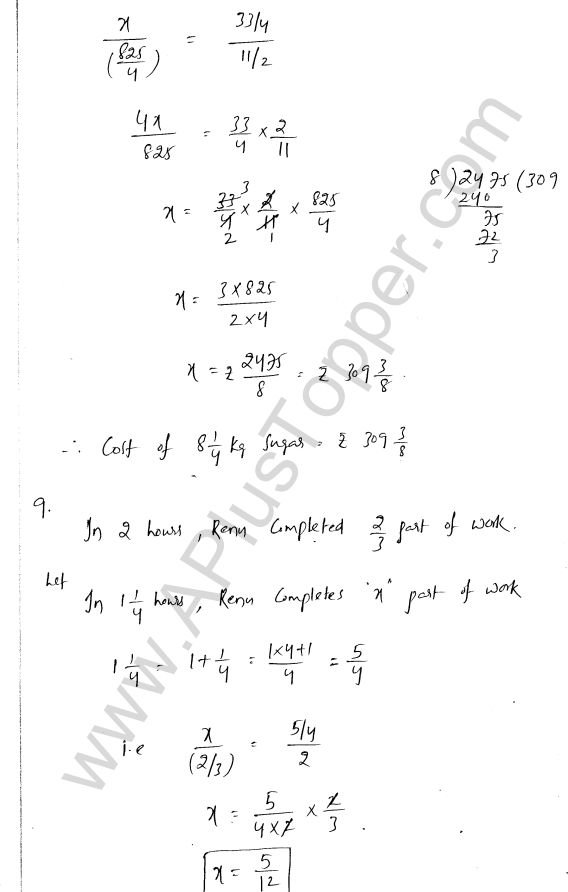 x/(825/4) = (33/4)/(11/2)
4x/825 = 33/4 × 2/11
x = 33/4 × 2/11 × 825/4
3
2 1
8)2475(309
240
75
72
3
x = (3×825)/(2×4)
x = ₹ 2475/8 = ₹ 309 3/8.
∴ Cost of 8 1/4 kg Sugar = ₹ 309 3/8
9.
In 2 hours, Renu Completed 2/3 part of work.
Let
In 1 1/4 hours, Renu Completes "x" part of work
1 1/4 = 1 + 1/4 = (1×4+1)/4 = 5/4
i.e x/(2/3) = (5/4)/2
x = 5/(4×2) × 2/3.
x = 5/12
www.APlusTopper.com